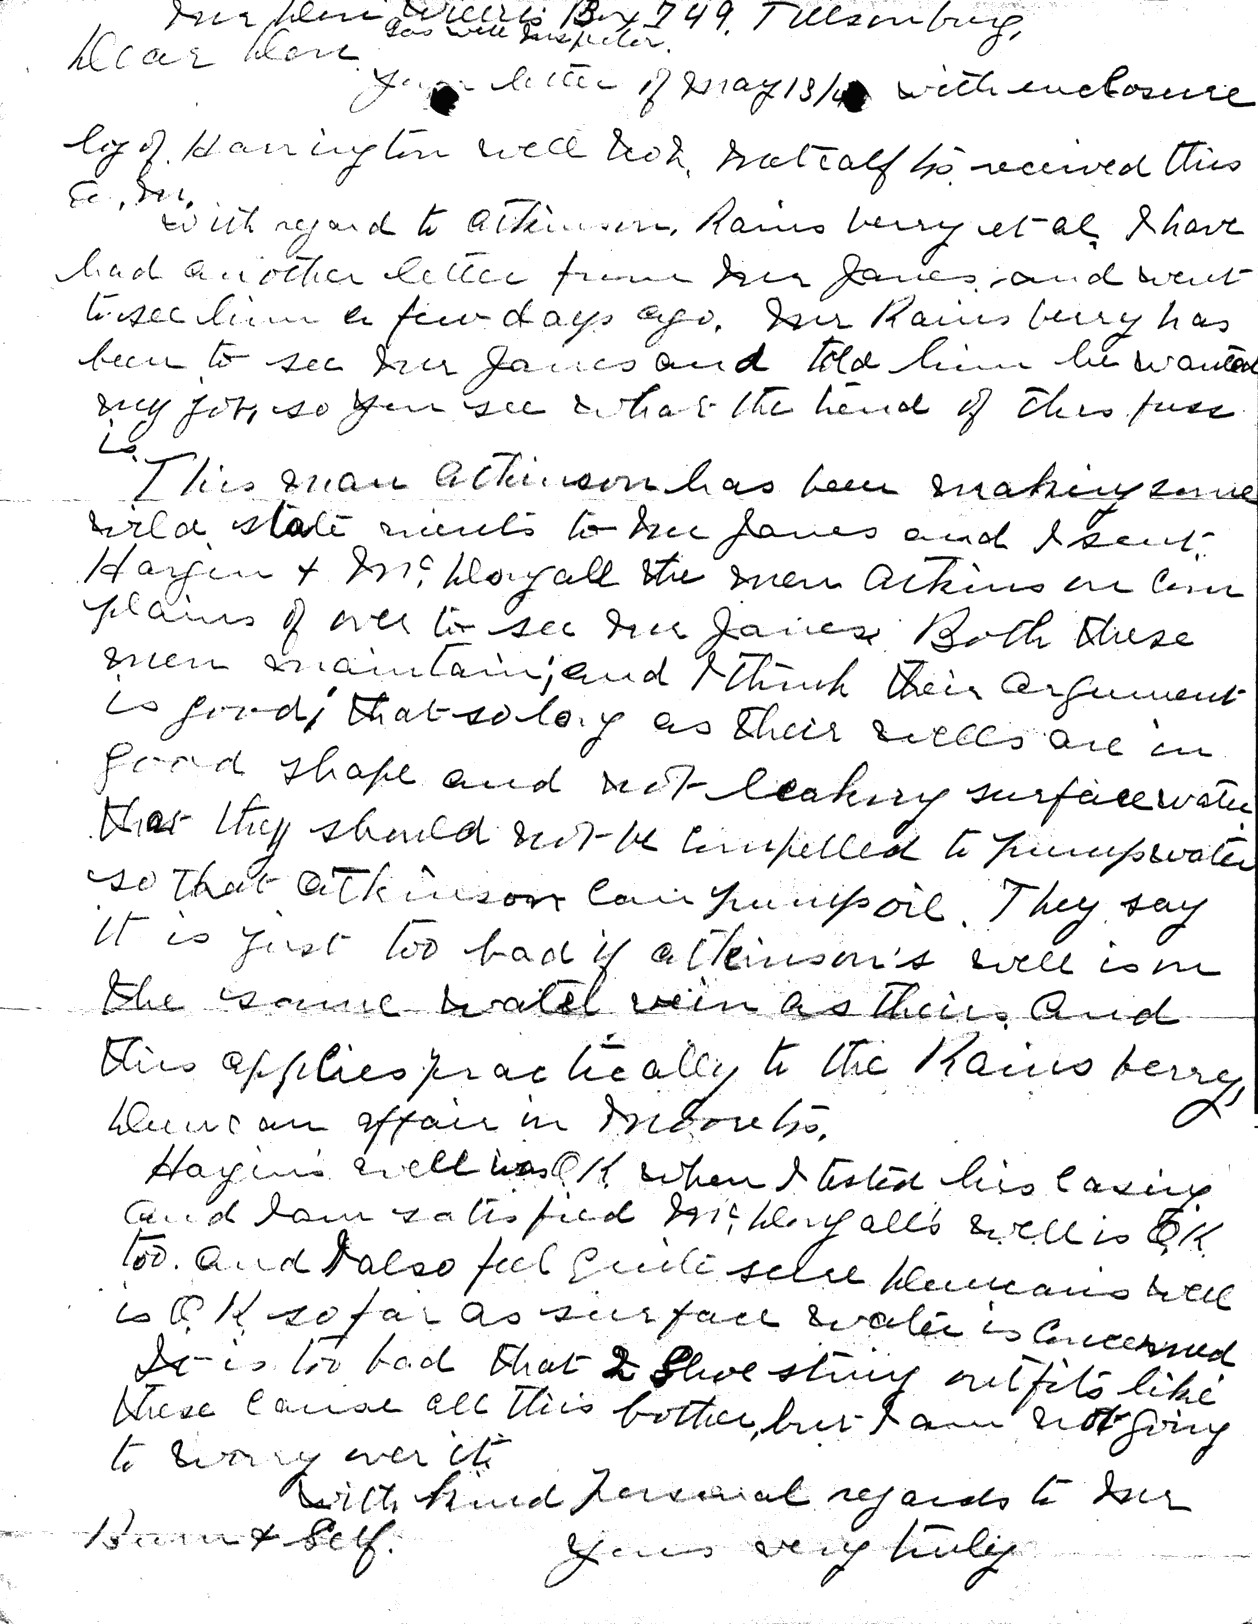 Mr Don Willis Box 749, Tillsonburg,
Gas well Inspector.
Dear Don
Your letter of May 13/4 with enclosure
log of Harrington well No 2, Metcalf Tp. received this
a.m.
With regard to Atkinson, Rainsberry et al, I have
had another letter from Mr Janes and went
to see him a few days ago. Mr Rainsberry has
been to see Mr Janes and told him he wanted
my job, so you see what the trend of this fuss
is.
This man Atkinson has been making some
wild statements to Mr Janes and I sent
Hagen + McDougall the men Atkinson com
plains of over to see Mr Janes. Both these
men maintain; and I think their argument
is good; that so long as their wells are in
good shape and not leaking surface water
that they should not be compelled to pump water
so that Atkinson can pump oil. They say
it is just too bad if Atkinson's well is on
the same water vein as theirs. And
this applies practically to the Rainsberry,
Duncan affair in Moore Tp.
Hagen's well was O K when I tested his casing
and I am satisfied McDougall's well is O K
too. And I also feel quite sure Duncans well
is O K so far as surface water is concerned
It is too bad that 2 Shoe string outfits like
these cause all this bother, but I am not going
to worry over it.
With kind personal regards to Mr
+ Self.
Yours very truly